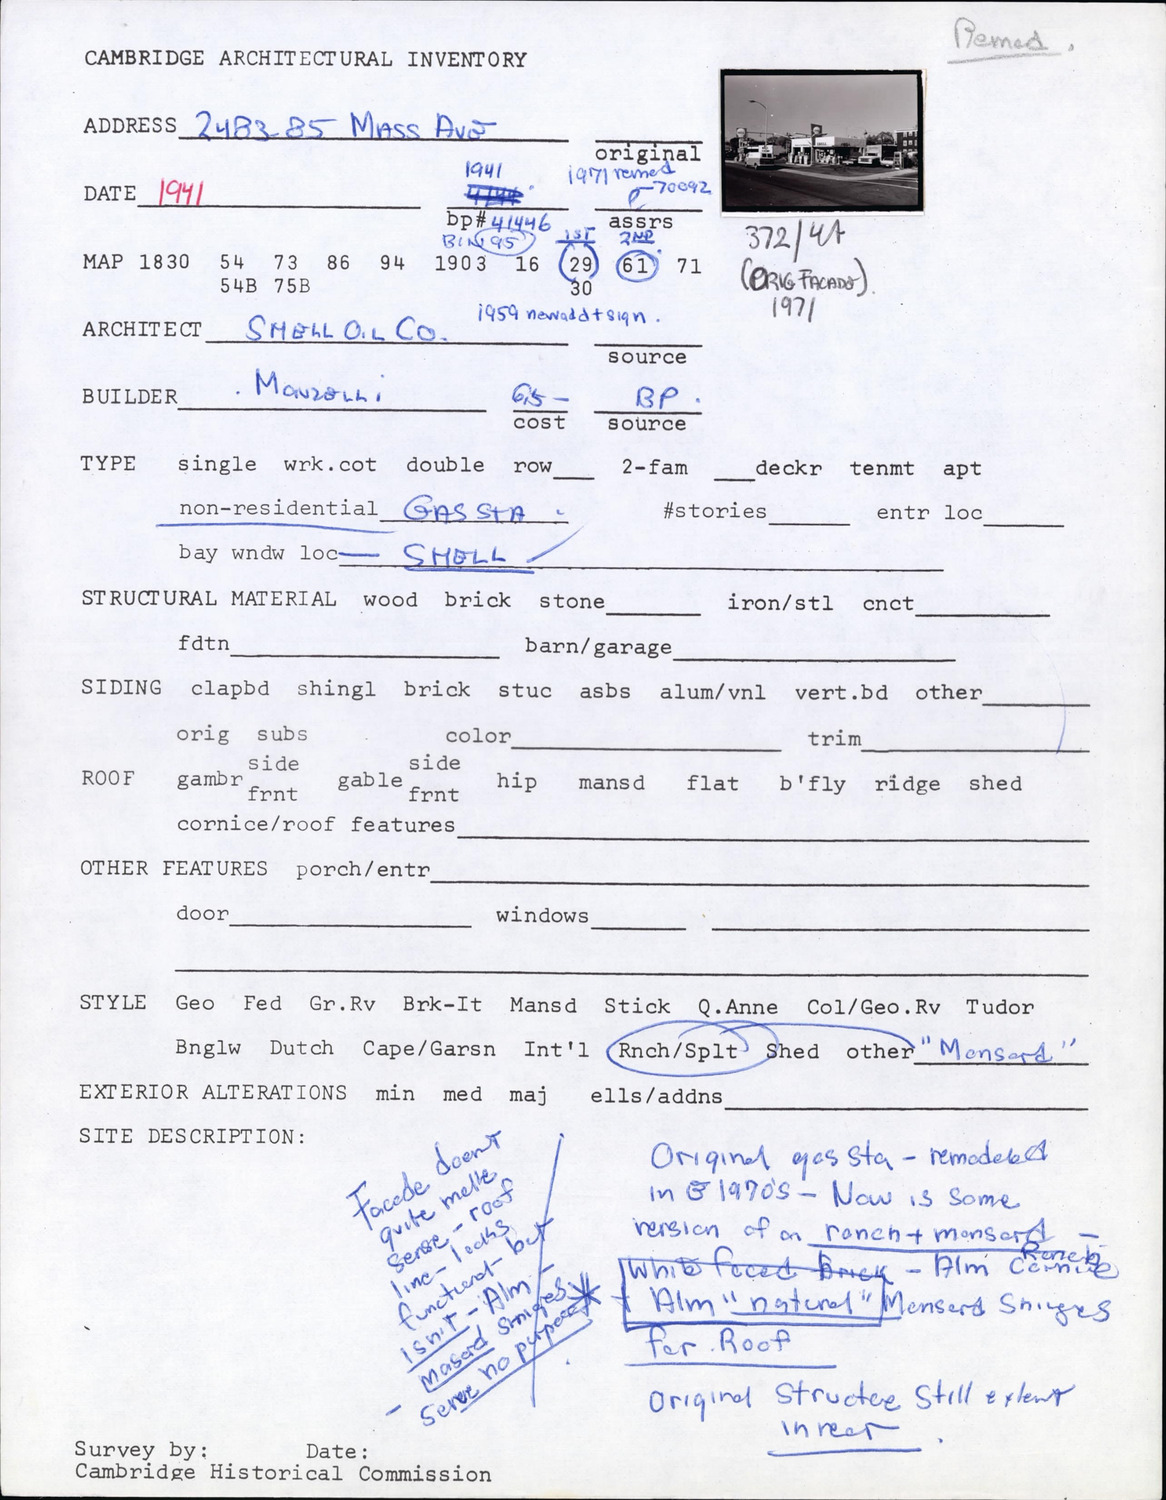 Remod.
CAMBRIDGE ARCHITECTURAL INVENTORY
ADDRESS 2483-85 MASS AVE
original
1941 1971 remod
DATE 1941 70092
bp# 41446 assrs
BIN 95 1ST 2ND
372/4A
MAP 1830 54 73 86 94 1903 16 29 61 71
54B 75B 30
(ORIG FACADE).
1971
1959 new add + sign.
ARCHITECT SHELL OIL CO.
source
BUILDER Monzelli 65- BP.
cost source
TYPE single wrk.cot double row 2-fam deckr tenmt apt
non-residential GAS STA #stories entr loc
bay wndw loc SHELL
STRUCTURAL MATERIAL wood brick stone iron/stl cnct
fdtn barn/garage
SIDING clapbd shingl brick stuc asbs alum/vnl vert.bd other
orig subs color trim
side side
ROOF gambr gable hip mansd flat b'fly ridge shed
frnt frnt
cornice/roof features
OTHER FEATURES porch/entr
door windows
STYLE Geo Fed Gr.Rv Brk-It Mansd Stick Q.Anne Col/Geo.Rv Tudor
Bnglw Dutch Cape/Garsn Int'l Rnch/Splt Shed other "Mansard"
EXTERIOR ALTERATIONS min med maj ells/addns
SITE DESCRIPTION:
Facade doesn't
quite make
sense - roof
line - looks
functional - but
isn't - Alm -
Masard Shniges
serve no purpose
Original gas sta - remodeled
in 1970's - Now is some
version of a ranch + mansard -
White faced Brick - Alm Cornice
Ranch
+ Alm "natural" Mansard Shniges
for Roof
Original Structee Still extent
in rear.
Survey by: Date:
Cambridge Historical Commission